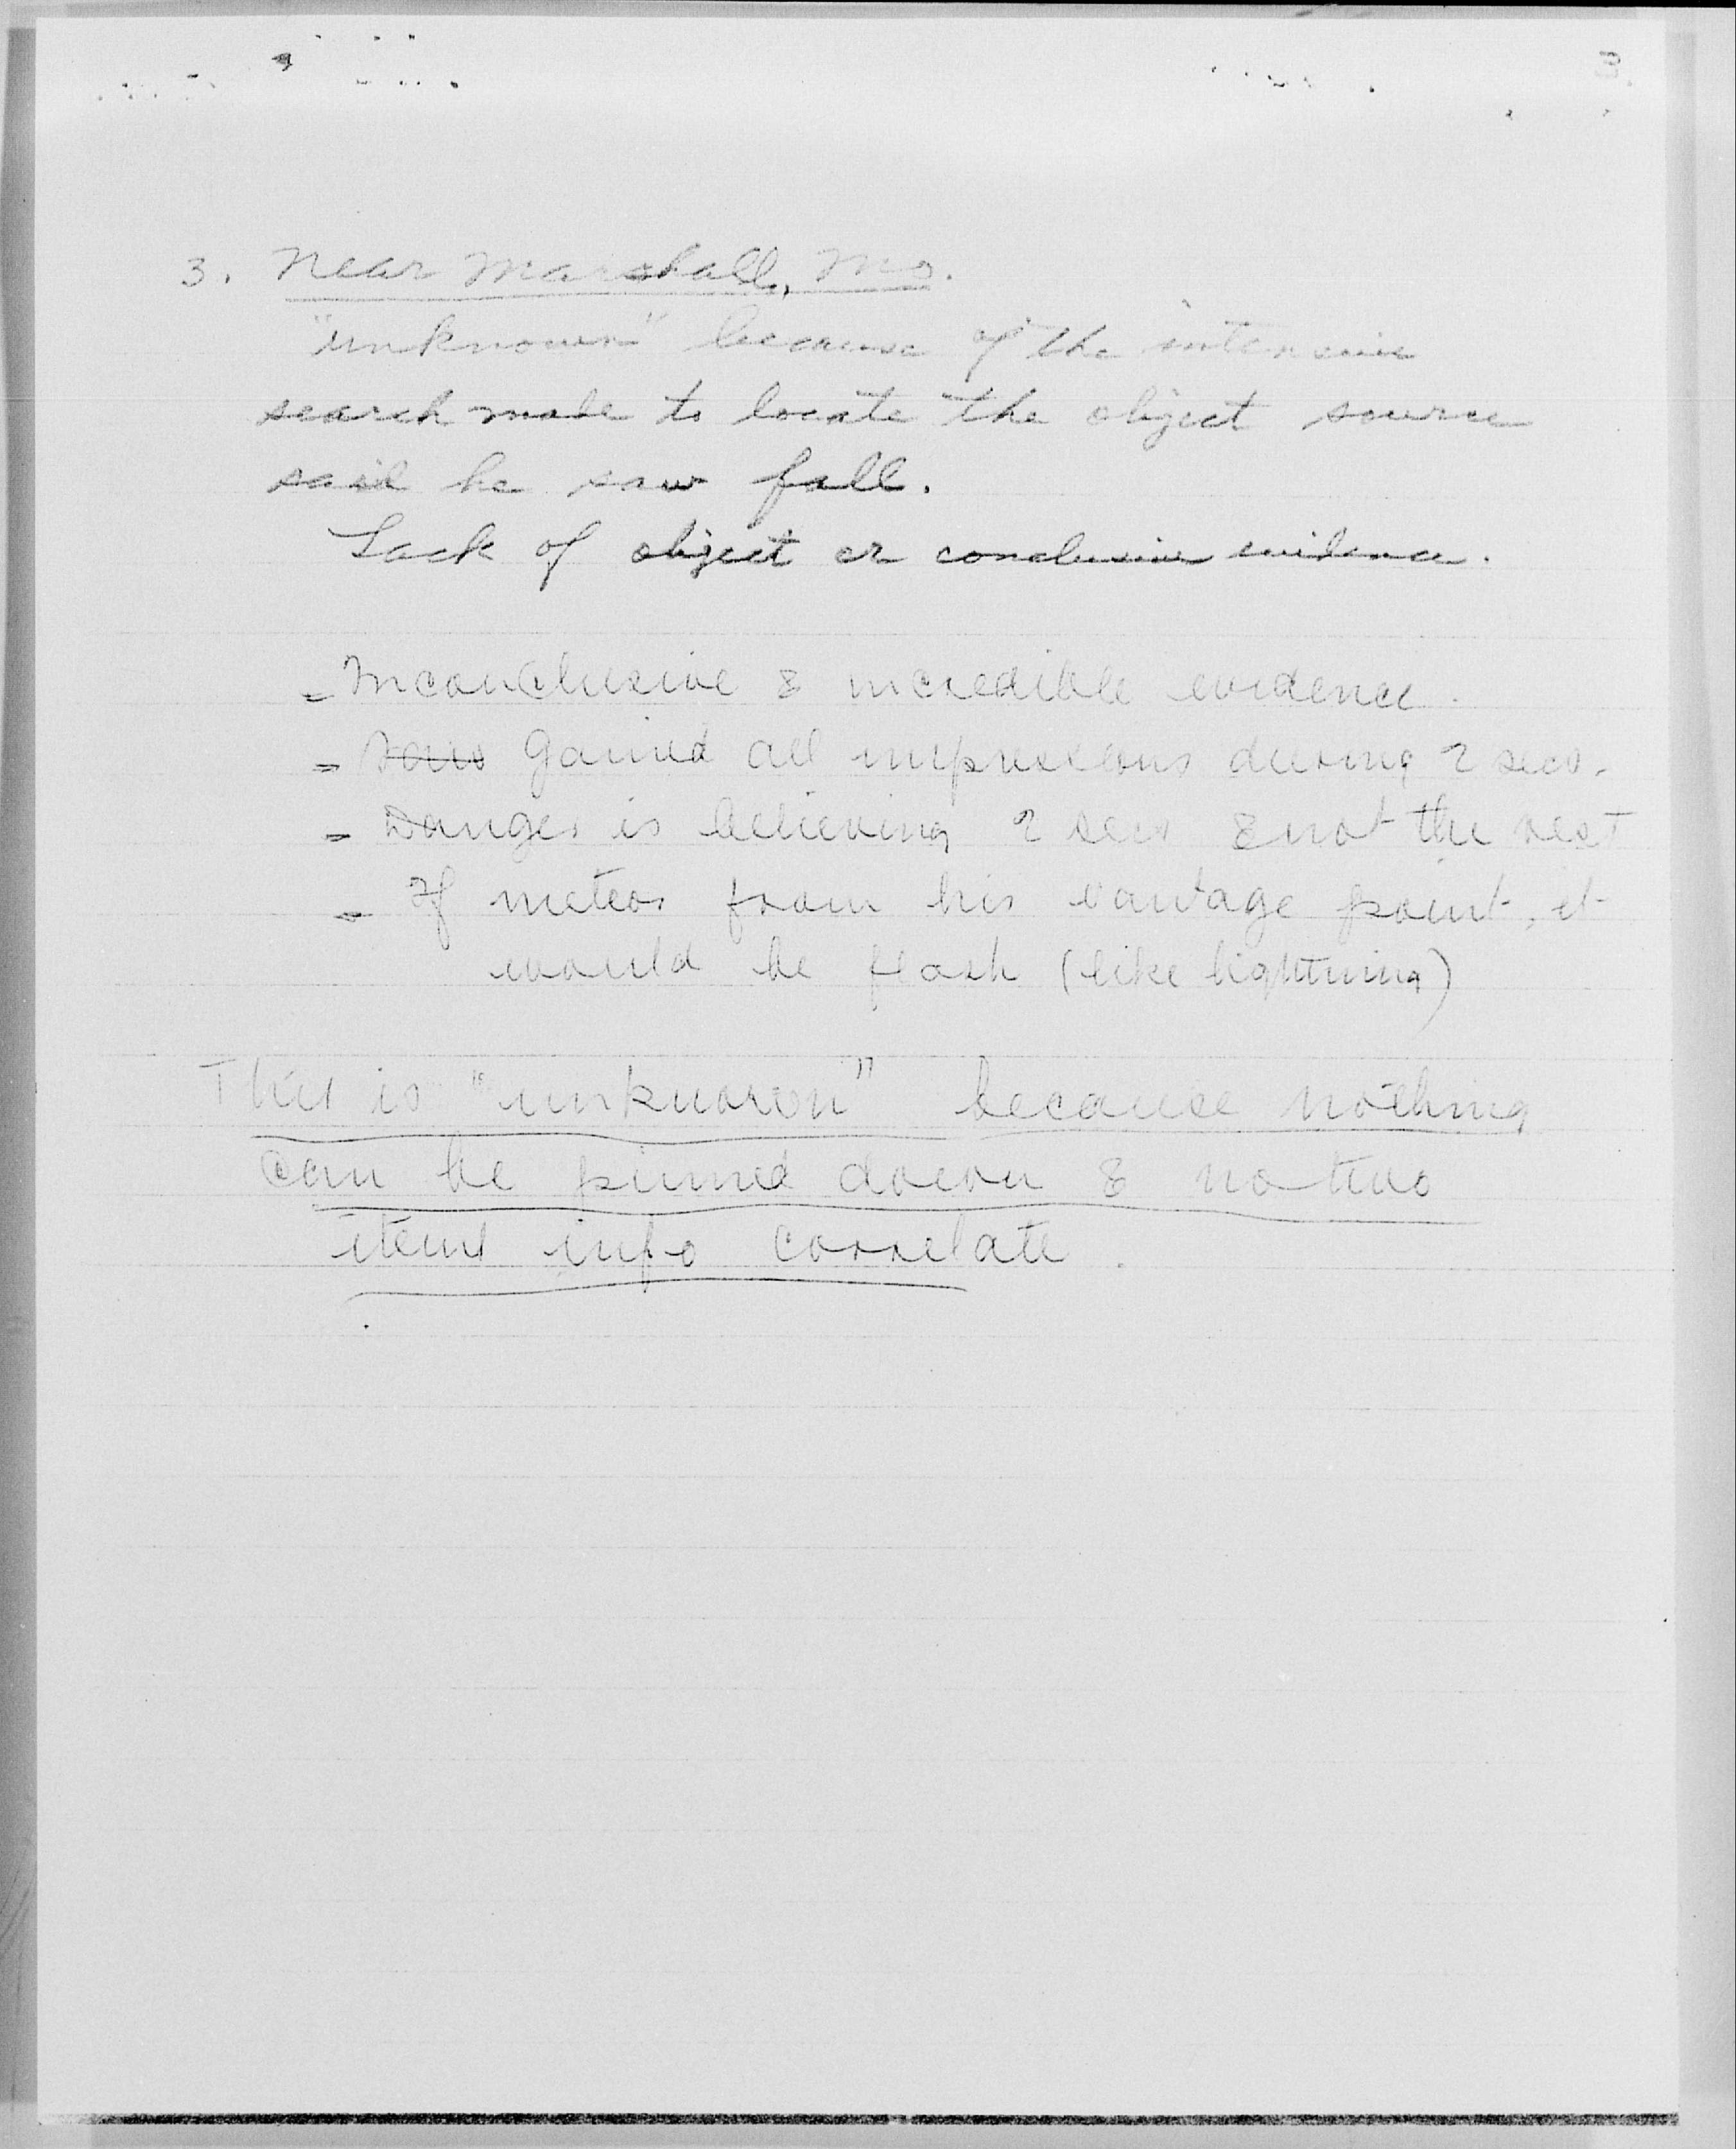 3. Near Marshall, Mo.
"unknown" because of the intensive
search made to locate the object source
said he saw fall.
Lack of object or conclusive evidence.
- Inconclusive & incredible evidence.
- Saw Gained all impressions during 2 secs.
- Danger is believing 2 secs & not the rest
- If meteor from his vantage point, it
would be flash (like lightning)
This is "unknown" because nothing
can be pinned down & no two
items info correlate.